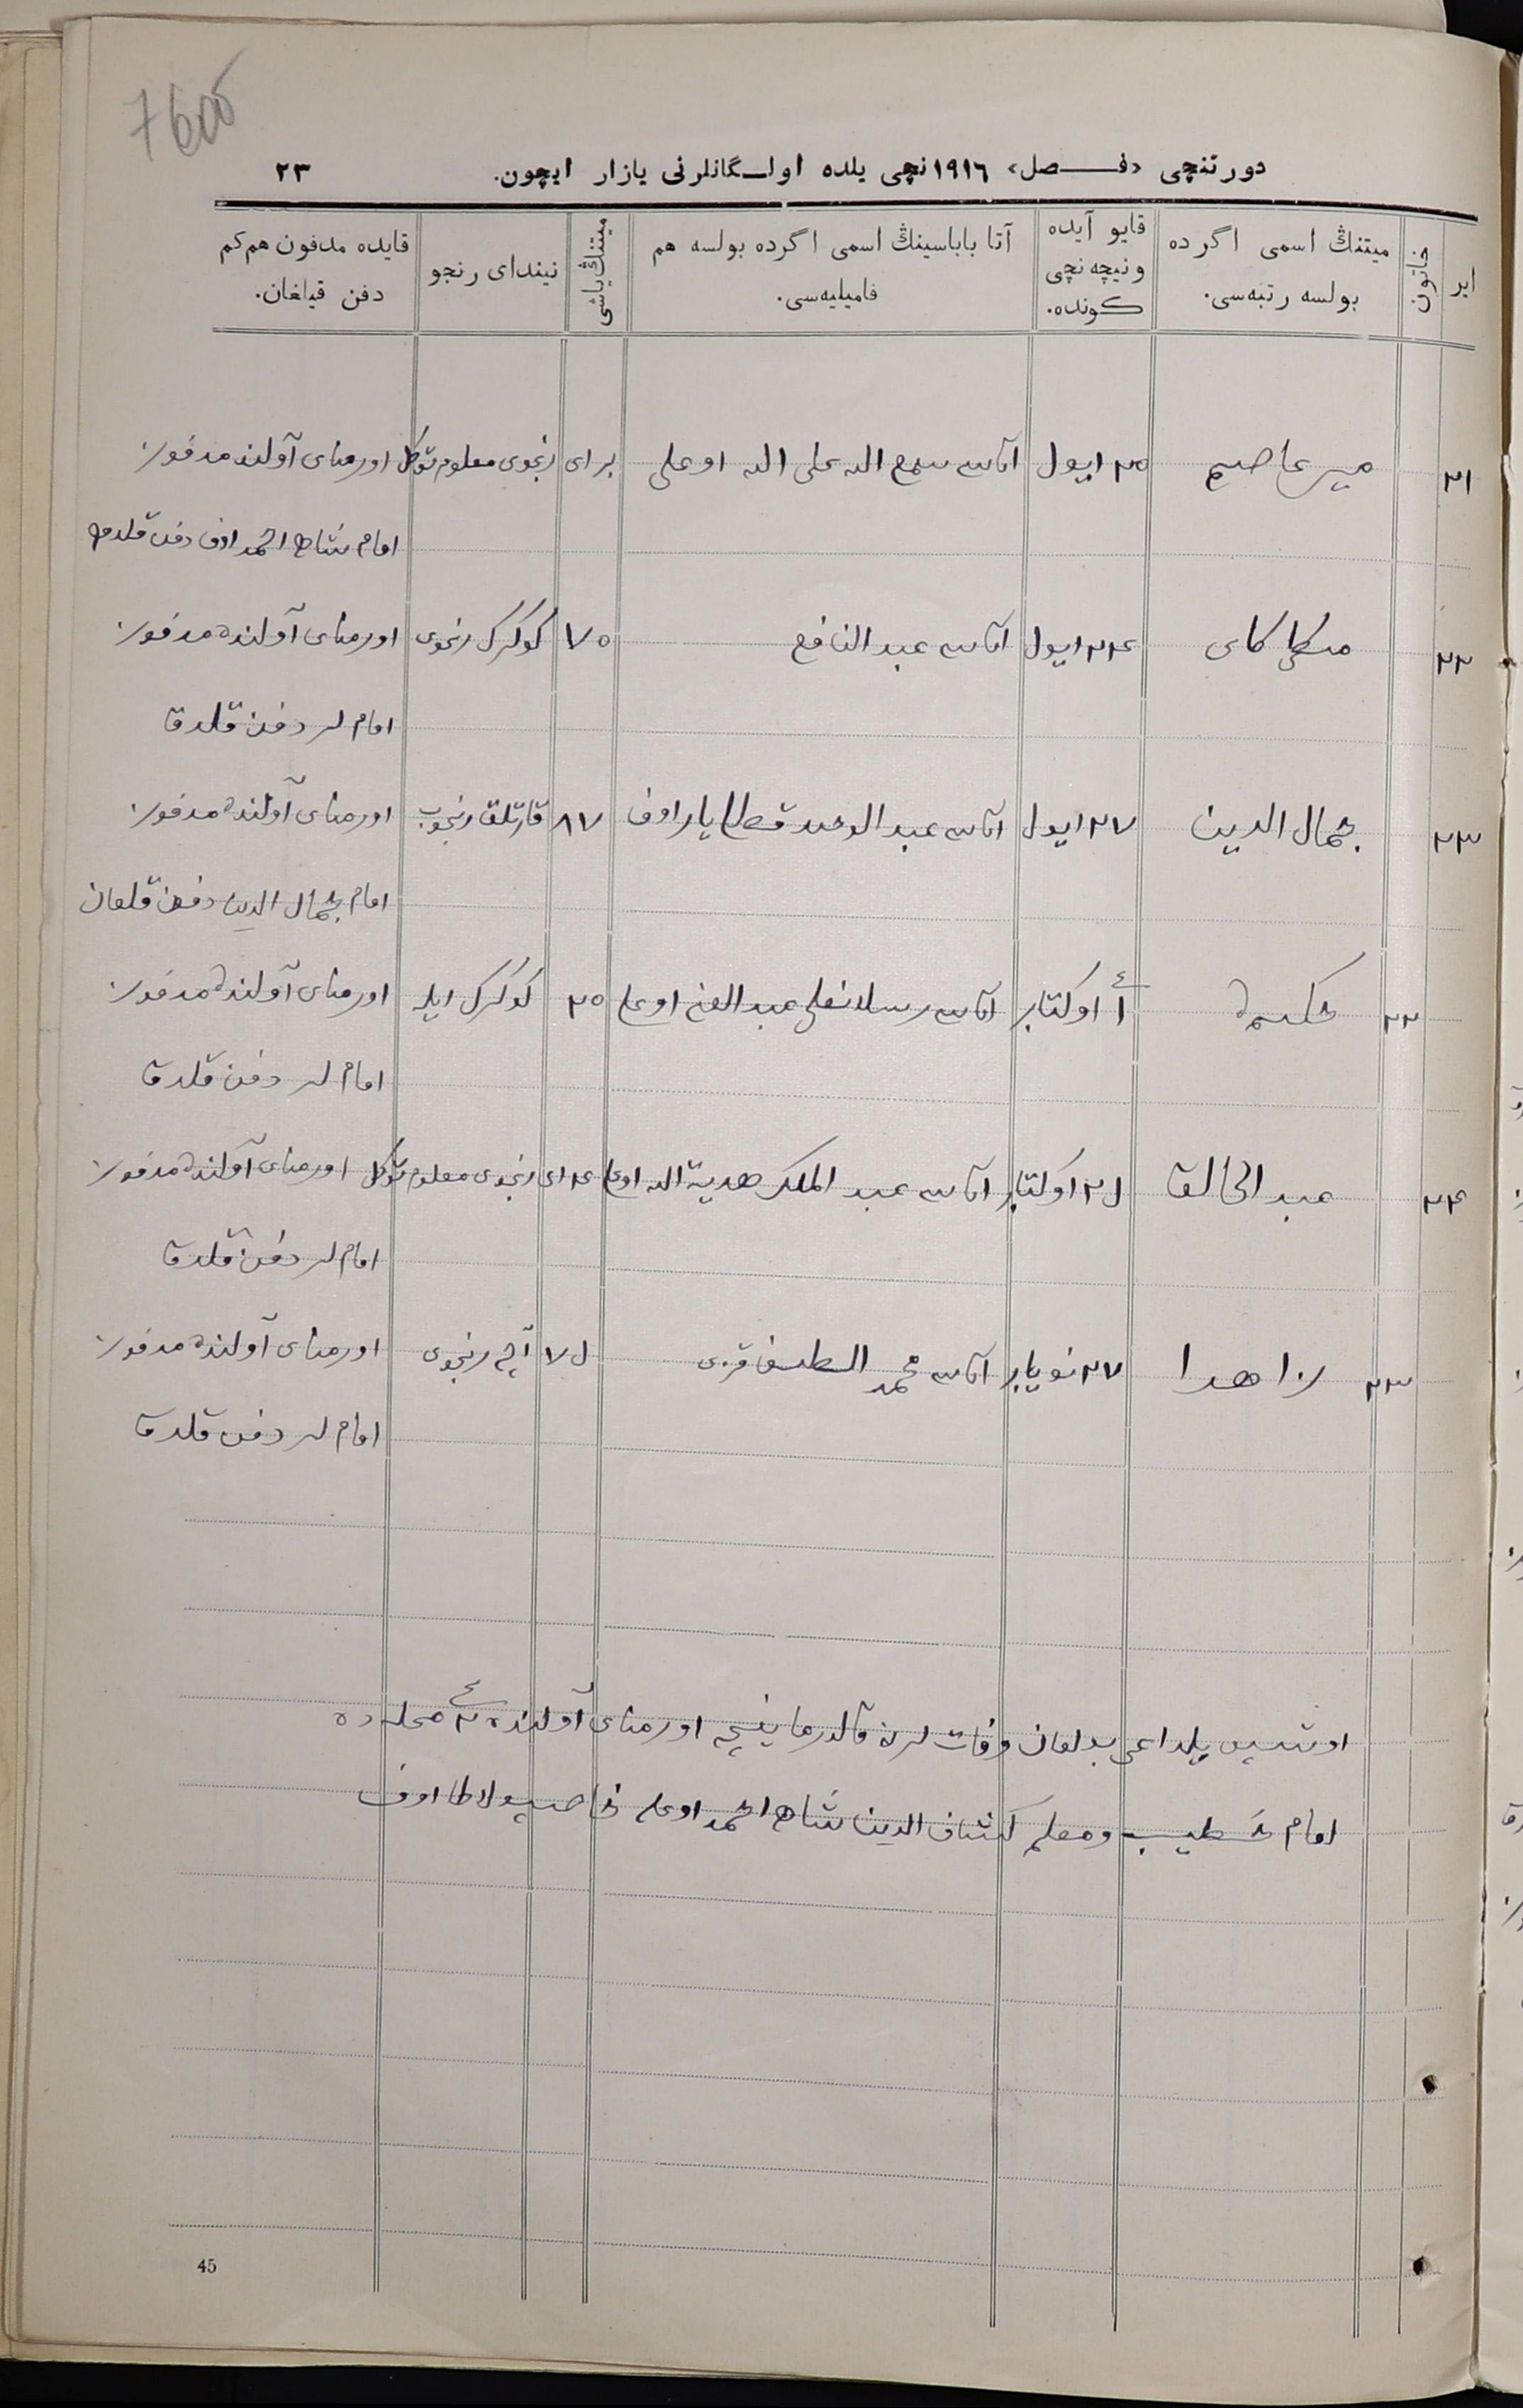 7600
دورتنچی «فصل» ١٩١٦نچی یلده اولگانلرنی یازار ایچون.
٢٣
ایر
خاتون
میتنڭ اسمی اگرده بولسه رتبه‌سی.
قایو آیده ونیچه‌نچی كونده.
آتا باباسینڭ اسمی اگرده بولسه هم فامیلیه‌سی.
میتنڭ یاشی
نیندای رنجو
قایده مدفون هم كم دفن قیلغان.
٢١ میرعاصم ٢٥ ایول آتاسی سمیع الله علی الله اوغلی بر ای رنجوی معلوم توگل اورمنای آولنده مدفون
امام شاه احمداوف دفن قلدی
٢٢ ٢٤ ایول آتاسی عبد النافع ٧٥ كوكرك رنجوی اورمنای آولنده مدفون
امام لر دفن قلدی
٢٣ جمال الدین ٢٧ ایول آتاسی عبد الوحید ٨٧ قارتلق رنجوی اورمنای آولنده مدفون
امام جمال الدین دفن قلغان
٢٢ حكیمه ١ اوكتابر آتاسی رسلانعلی عبد الغنی اوغلی ٢٥ كوكرك ایله اورمنای آولنده مدفون
امام لر دفن قلدی
٢٤ عبد الخالق اوكتابر آتاسی عبد الملك هدیة الله اوغلی ٤ ای رنجوی معلوم توگل اورمنای آولنده مدفون
امام لر دفن قلدی
٢٣ زاهدا ٢٧ نویابر آتاسی محمد الطیف قزی ٧ اچ رنجوی اورمنای آولنده مدفون
امام لر دفن قلدی
اوشبو یلداغی بولغان وفات لرنی قالدرماینچه اورمنای آولنده ٢ محله ده
امام خطیب ومعلم كشاف الدین شاه احمد اوغلی
45